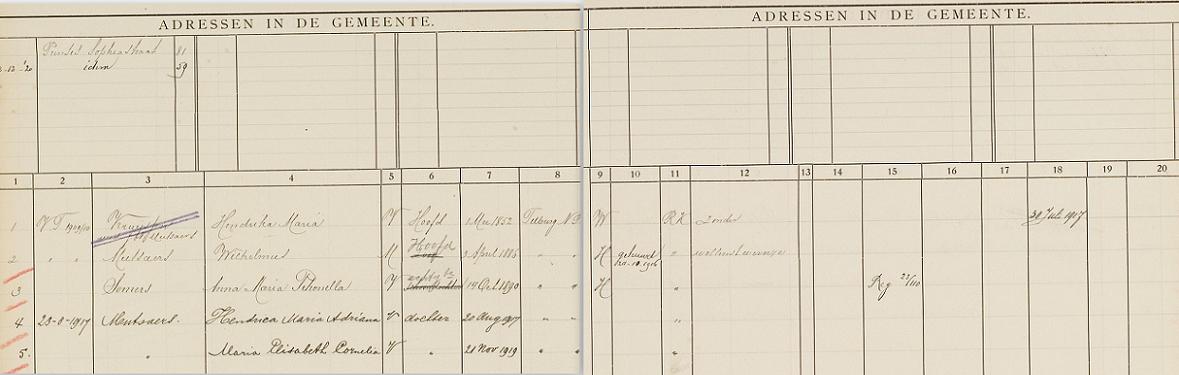 ADRESSEN IN DE GEMEENTE. ADRESSEN IN DE GEMEENTE.
Prinses Sophiastraat 81
12-12-'20 idem 59
1 2 3 4 5 6 7 8 9 10 11 12 13 14 15 16 17 18 19 20
1 V.T. 1910/20 Hendrika Maria V Hoofd 1 Mei 1852 Tilburg N.B. W R.K. zonder 30 Juli 1917
wed Mutsaers
2 " " Mutsaers Wilhelmus M Hoofd 3 April 1886 " " H gehuwd "
3 Somers Anna Maria Petronella V 14 Oct 1890 " " H " Reg
4 23-8-1917 Mutsaers. Hendrica Maria Adriana V dochter 20 Aug 1917 " " "
5. " Maria Elisabeth Cornelia V " 21 Nov 1919 " " "